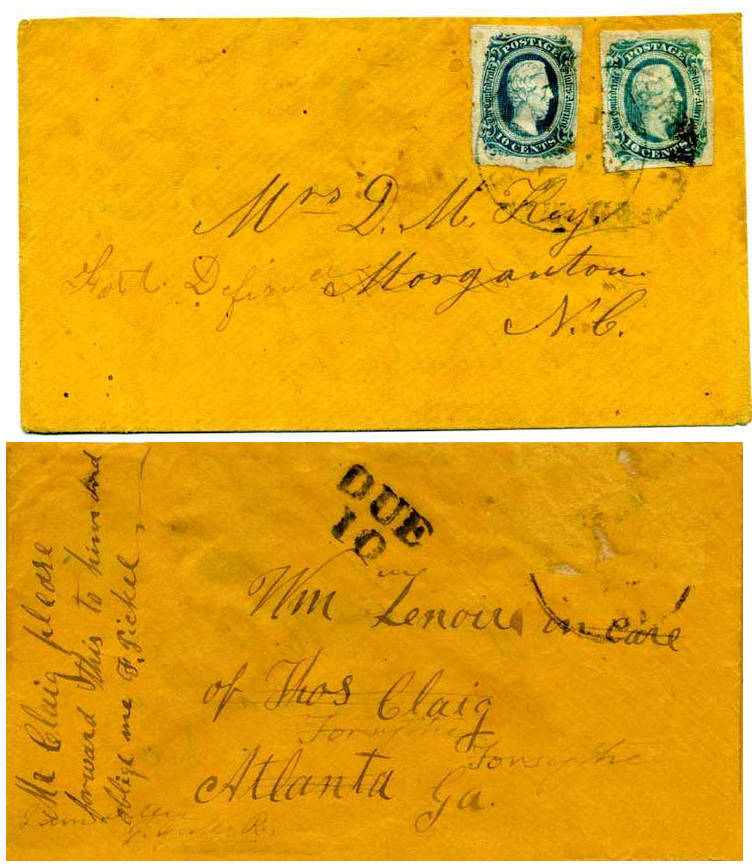 POSTAGE
The Confederate States of America
10 CENTS
POSTAGE
The Confederate States of America
10 CENTS
Mrs D. M. Key.
Fort Defiance Morganton.
N. C.
DUE
10
Wm Lenoir in care
of Thos Claig
Forsythe
Forsythe
Atlanta Ga.
Mr Claig please
forward this to him and
oblige me F. Pickel